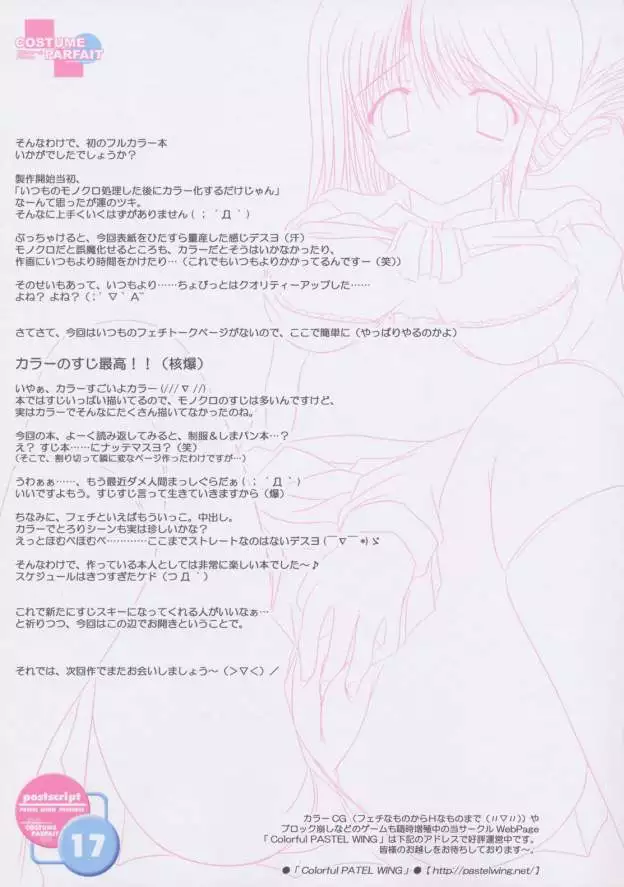 COSTUME
PARFAIT
そんなわけで、初のフルカラー本
いかがでしたでしょうか?
製作開始当初、
「いつものモノクロ処理した後にカラー化するだけじゃん」
なーんて思ったが運のツキ。
そんなに上手くいくはずがありません( ; ´Д`)
ぶっちゃけると、今回表紙をひたすら量産した感じデスヨ(汗)
モノクロだと誤魔化せるところも、カラーだとそうはいかなかったり、
作画にいつもより時間をかけたり…(これでもいつもよりかかってるんですー(笑))
そのせいもあって、いつもより……ちょびっとはクオリティーアップした……
よね? よね? (;´∇`A¨
さてさて、今回はいつものフェチトークページがないので、ここで簡単に(やっぱりやるのかよ)
カラーのすじ最高!!(核爆)
いやぁ、カラーすごいよカラー(///∇//)
本ではすじいっぱい描いてるので、モノクロのすじは多いんですけど、
実はカラーでそんなにたくさん描いてなかったのね。
今回の本、よーく読み返してみると、制服&しまパン本…?
え? すじ本……にナッテマスヨ?(笑)
(そこで、割り切って隣に変なページ作ったわけですが…)
うわぁぁ……、もう最近ダメ人間まっしぐらだぁ( ; ´Д`)
いいですよもう。すじすじ言って生きていきますから(爆)
ちなみに、フェチといえばもういっこ。中出し。
カラーでとろりシーンも実は珍しいかな?
えっとほむぺほむぺ…………ここまでストレートなのはないデスヨ(￣∇￣*)ゞ
そんなわけで、作っている本人としては非常に楽しい本でした〜♪
スケジュールはきつすぎたケド(つД`)
これで新たにすじスキーになってくれる人がいいなぁ…
と祈りつつ、今回はこの辺でお開きということで。
それでは、次回作でまたお会いしましょう〜(>∇<)/
postscript
PASTEL WING PRESENTS
COSTUME
PARFAIT
17
カラーCG(フェチなものからHなものまで(〃∇〃))や
ブロック崩しなどのゲームも随時増殖中の当サークルWebPage
「Colorful PASTEL WING」は下記のアドレスで好評運営中です。
皆様のお越しをお待ちしております〜。
●「Colorful PATEL WING」●【http://pastelwing.net/】